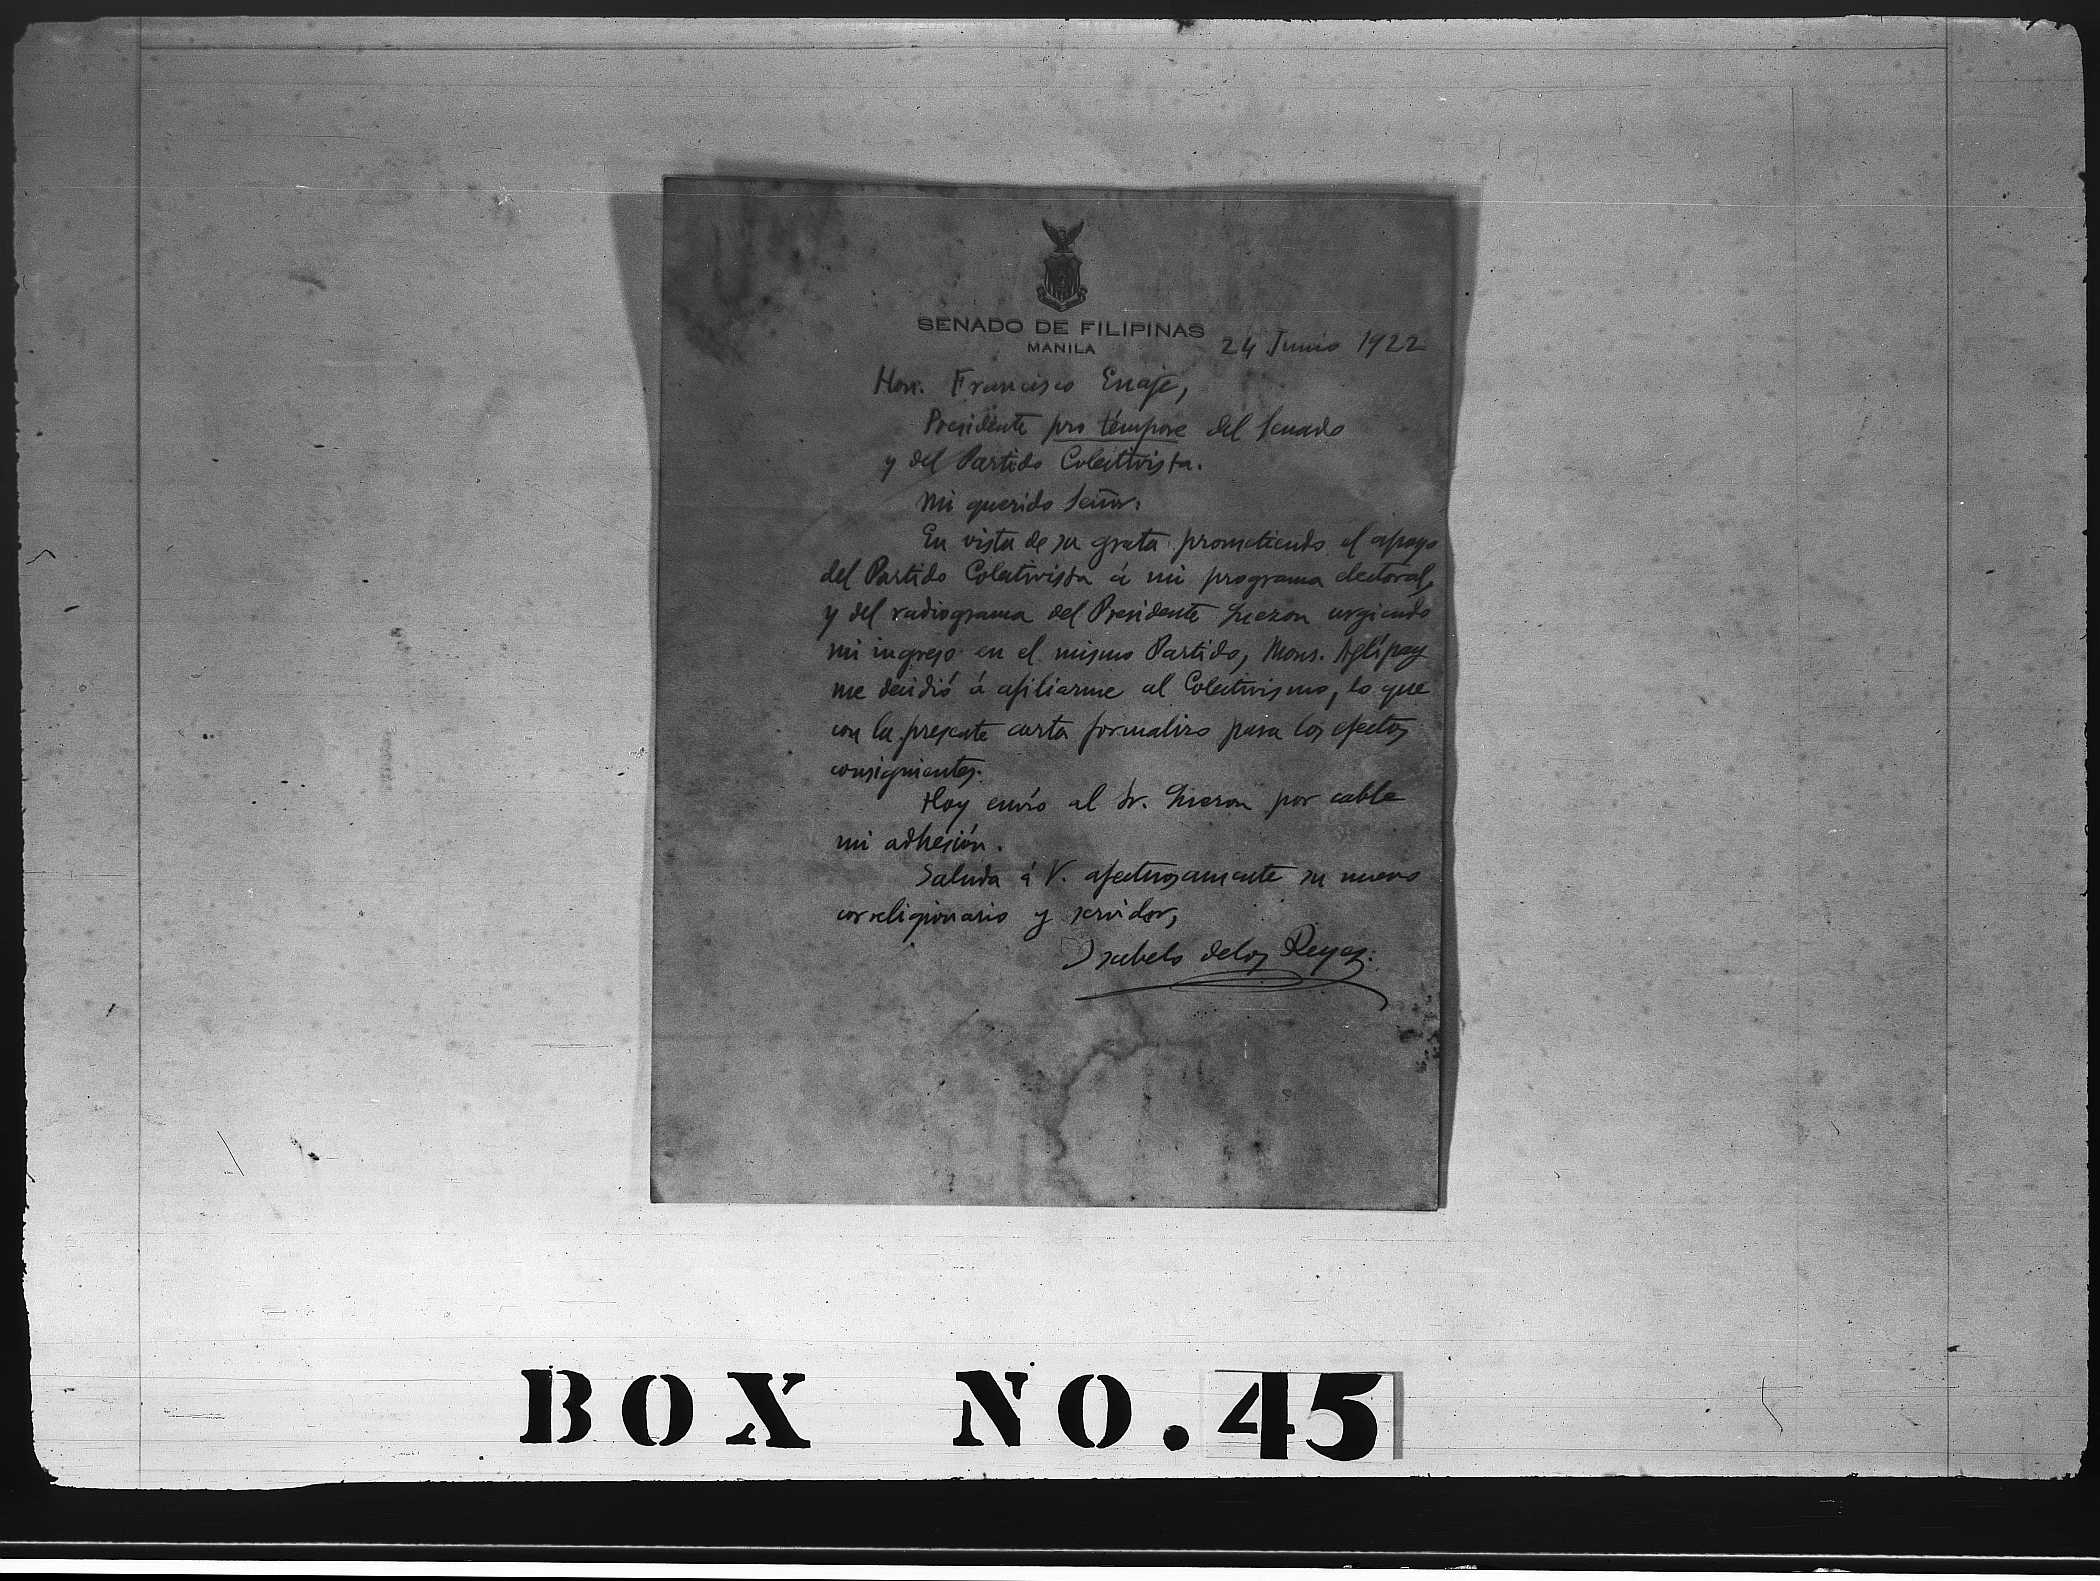 SENADO DE FILIPINAS
MANILA
24 Junio 1922
Hon. Francisco Enaje,
Presidente pro témpore del Senado
y del Partido Colectivista.
Mi querido Señor.
En vista de su grata prometiendo el apoyo
del Partido Colectivista á mi programa electoral,
y del radiograma del Presidente Quezon urgiendo
mi ingreso en el mismo Partido, Mons. Aglípay
me decidió á afiliarme al Colectivismo, lo que
con la presente carta formalizo para los efectos
consiguientes.
Hoy envío al Sr. Quezon por cable
mi adhesión.
Saluda á V. afectuosamente su nuevo
correligionario y servidor,
Isabelo delos Reyes.
BOX NO. 45